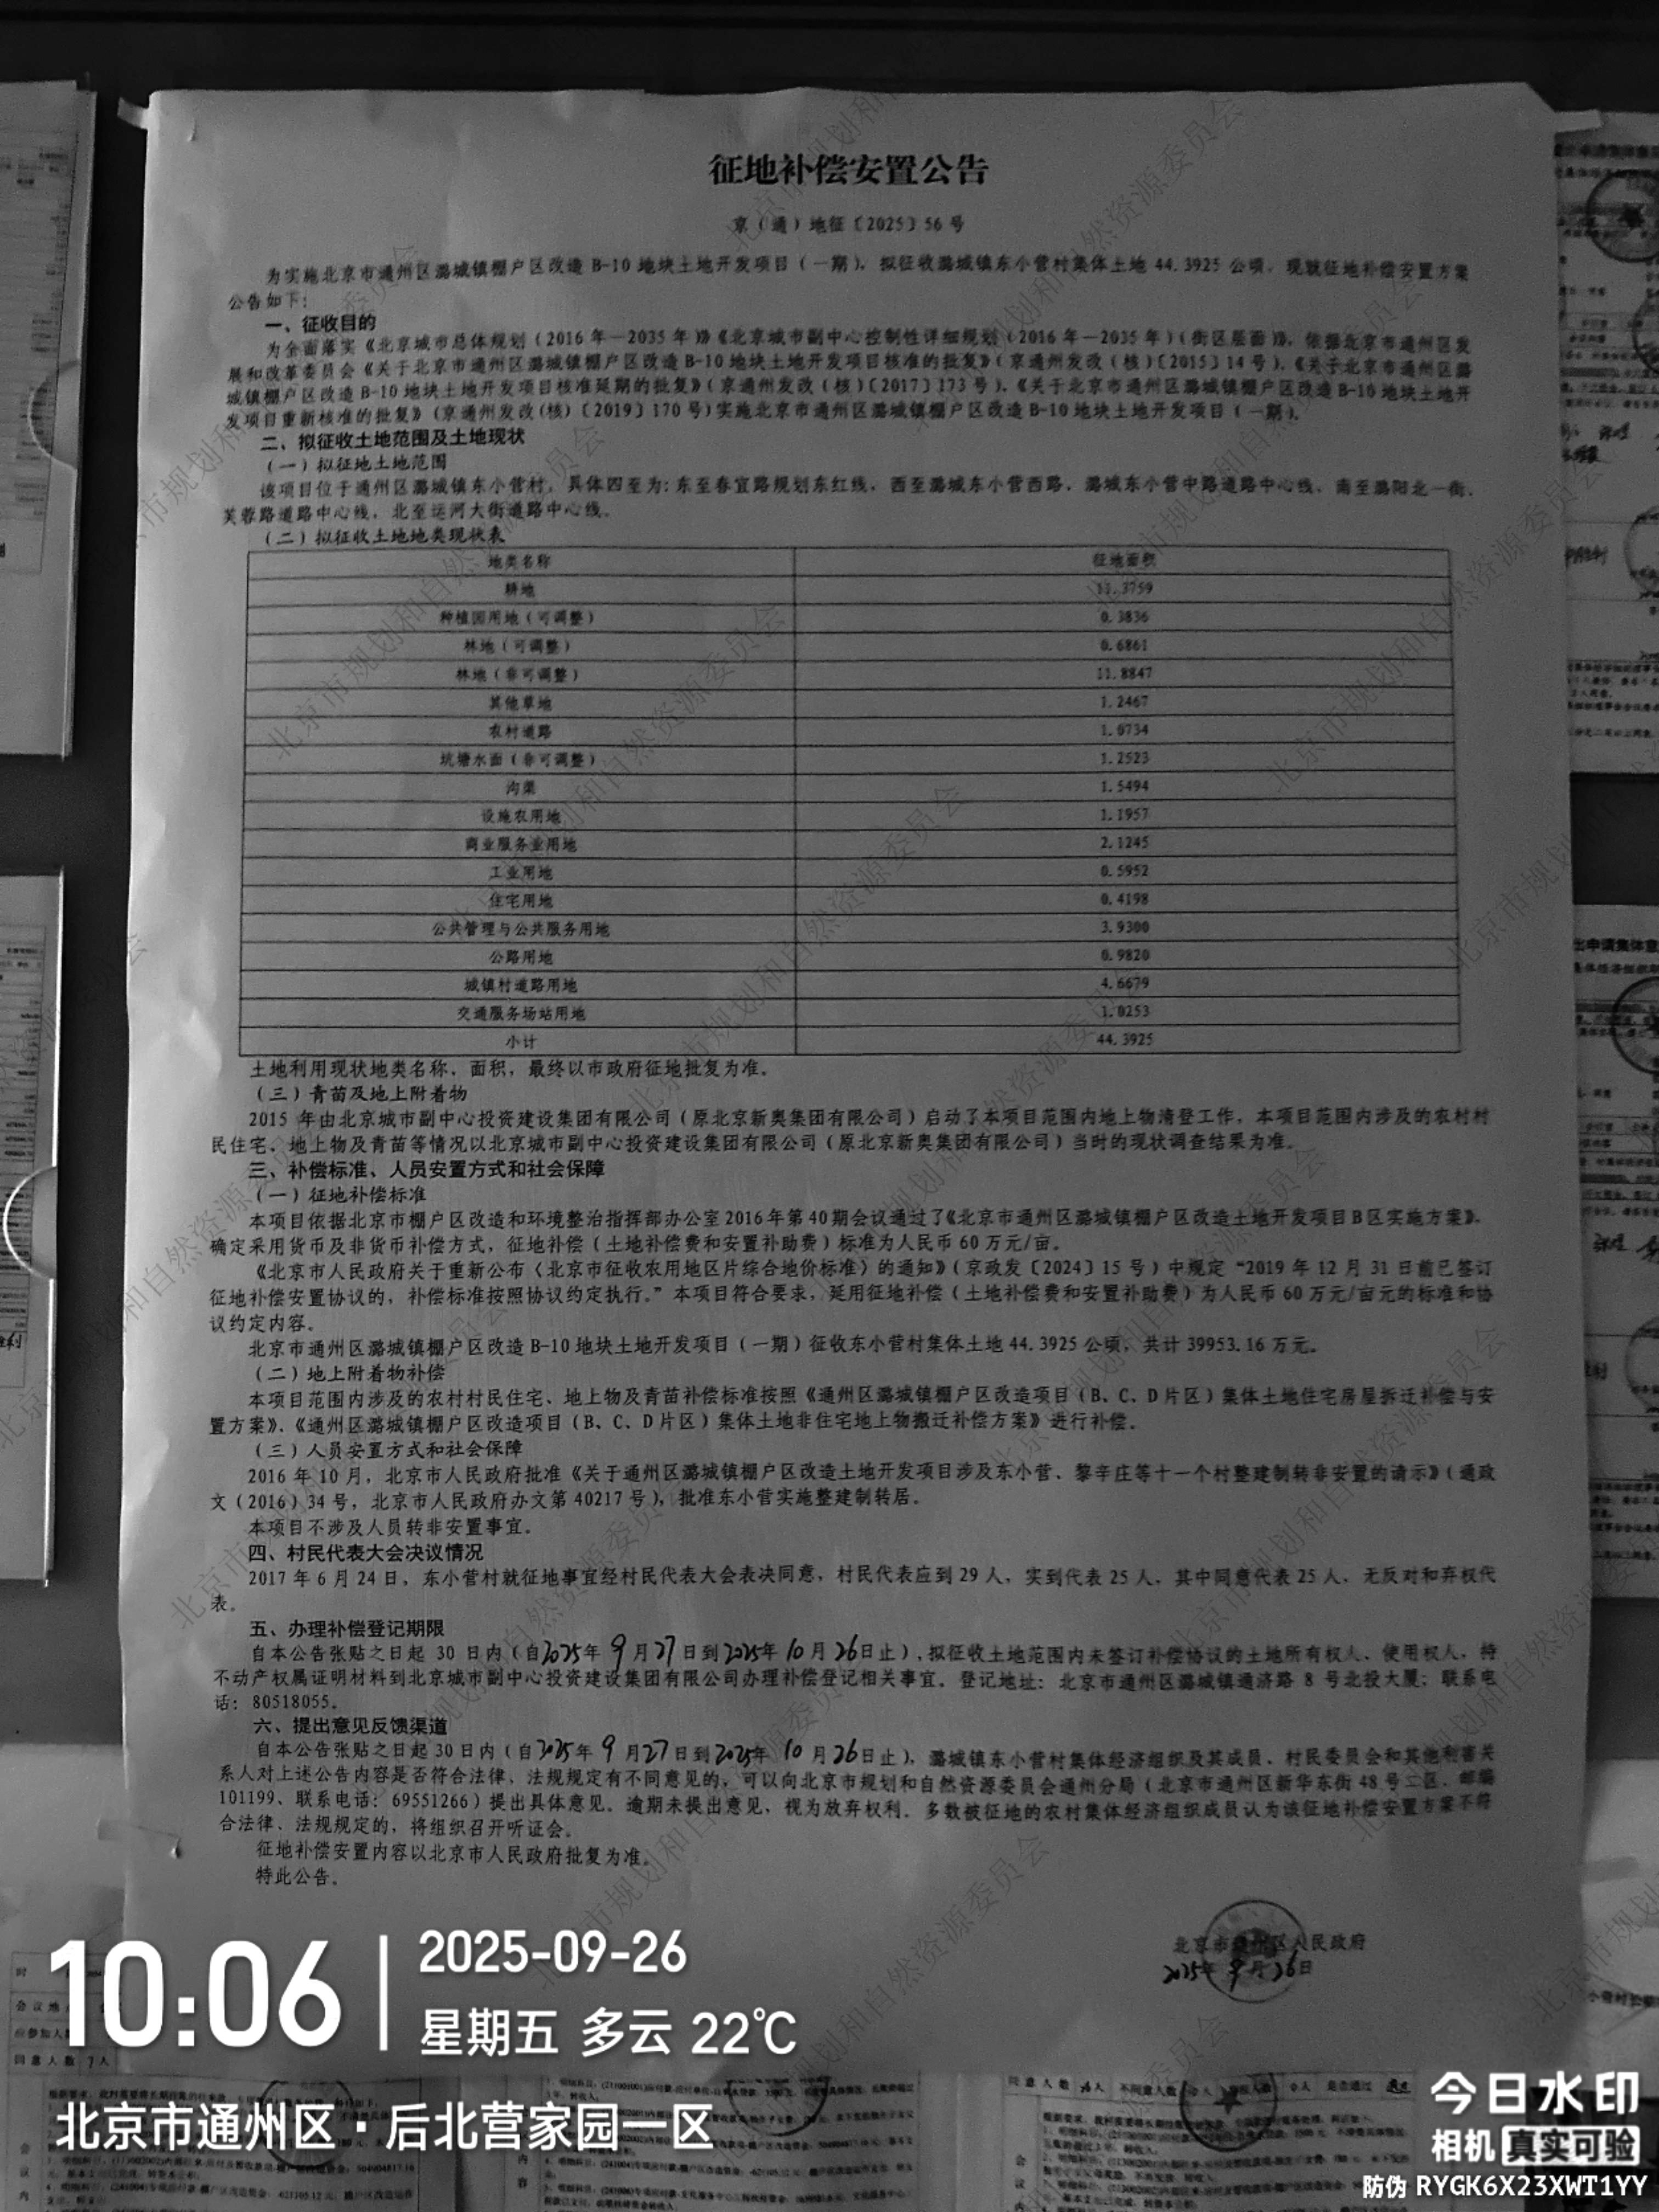 征地补偿安置公告
京（通）地征〔2025〕56号
为实施北京市通州区潞城镇棚户区改造B-10地块土地开发项目（一期），拟征收潞城镇东小营村集体土地44.3925公顷，现就征地补偿安置方案
公告如下：
一、征收目的
为全面落实《北京城市总体规划（2016年—2035年）》《北京城市副中心控制性详细规划（2016年—2035年）（街区层面）》，依据北京市通州区发
展和改革委员会《关于北京市通州区潞城镇棚户区改造B-10地块土地开发项目核准的批复》（京通州发改（核）〔2015〕14号）、《关于北京市通州区潞
城镇棚户区改造B-10地块土地开发项目核准延期的批复》（京通州发改（核）〔2017〕173号）、《关于北京市通州区潞城镇棚户区改造B-10地块土地开
发项目重新核准的批复》（京通州发改(核)〔2019〕170号）实施北京市通州区潞城镇棚户区改造B-10地块土地开发项目（一期）。
二、拟征收土地范围及土地现状
（一）拟征地土地范围
该项目位于通州区潞城镇东小营村，具体四至为：东至春宜路规划东红线，西至潞城东小营西路、潞城东小营中路道路中心线，南至潞阳北一街、
芙蓉路道路中心线，北至运河大街道路中心线。
（二）拟征收土地地类现状表
地类名称 征地面积
耕地 11.3759
种植园用地（可调整） 0.3836
林地（可调整） 0.6861
林地（非可调整） 11.8847
其他草地 1.2467
农村道路 1.0734
坑塘水面（非可调整） 1.2523
沟渠 1.5494
设施农用地 1.1957
商业服务业用地 2.1245
工业用地 0.5952
住宅用地 0.4198
公共管理与公共服务用地 3.9300
公路用地 0.9820
城镇村道路用地 4.6679
交通服务场站用地 1.0253
小计 44.3925
土地利用现状地类名称、面积，最终以市政府征地批复为准。
（三）青苗及地上附着物
2015年由北京城市副中心投资建设集团有限公司（原北京新奥集团有限公司）启动了本项目范围内地上物清登工作，本项目范围内涉及的农村村
民住宅、地上物及青苗等情况以北京城市副中心投资建设集团有限公司（原北京新奥集团有限公司）当时的现状调查结果为准。
三、补偿标准、人员安置方式和社会保障
（一）征地补偿标准
本项目依据北京市棚户区改造和环境整治指挥部办公室2016年第40期会议通过了《北京市通州区潞城镇棚户区改造土地开发项目B区实施方案》，
确定采用货币及非货币补偿方式，征地补偿（土地补偿费和安置补助费）标准为人民币60万元/亩。
《北京市人民政府关于重新公布〈北京市征收农用地区片综合地价标准〉的通知》（京政发〔2024〕15号）中规定“2019年12月31日前已签订
征地补偿安置协议的，补偿标准按照协议约定执行。”本项目符合要求，延用征地补偿（土地补偿费和安置补助费）为人民币60万元/亩元的标准和协
议约定内容。
北京市通州区潞城镇棚户区改造B-10地块土地开发项目（一期）征收东小营村集体土地44.3925公顷，共计39953.16万元。
（二）地上附着物补偿
本项目范围内涉及的农村村民住宅、地上物及青苗补偿标准按照《通州区潞城镇棚户区改造项目（B、C、D片区）集体土地住宅房屋拆迁补偿与安
置方案》、《通州区潞城镇棚户区改造项目（B、C、D片区）集体土地非住宅地上物搬迁补偿方案》进行补偿。
（三）人员安置方式和社会保障
2016年10月，北京市人民政府批准《关于通州区潞城镇棚户区改造土地开发项目涉及东小营、黎辛庄等十一个村整建制转非安置的请示》（通政
文（2016）34号，北京市人民政府办文第40217号），批准东小营实施整建制转居。
本项目不涉及人员转非安置事宜。
四、村民代表大会决议情况
2017年6月24日，东小营村就征地事宜经村民代表大会表决同意，村民代表应到29人，实到代表25人，其中同意代表25人，无反对和弃权代
表。
五、办理补偿登记期限
自本公告张贴之日起30日内（自2025年9月27日到2025年10月26日止），拟征收土地范围内未签订补偿协议的土地所有权人、使用权人，持
不动产权属证明材料到北京城市副中心投资建设集团有限公司办理补偿登记相关事宜。登记地址：北京市通州区潞城镇通济路8号北投大厦；联系电
话：80518055。
六、提出意见反馈渠道
自本公告张贴之日起30日内（自2025年9月27日到2025年10月26日止），潞城镇东小营村集体经济组织及其成员、村民委员会和其他利害关
系人对上述公告内容是否符合法律、法规规定有不同意见的，可以向北京市规划和自然资源委员会通州分局（北京市通州区新华东街48号二区，邮编
101199、联系电话：69551266）提出具体意见。逾期未提出意见，视为放弃权利。多数被征地的农村集体经济组织成员认为该征地补偿安置方案不符
合法律、法规规定的，将组织召开听证会。
征地补偿安置内容以北京市人民政府批复为准。
特此公告。
北京市通州区人民政府
2025年9月26日
10:06
2025-09-26
星期五 多云 22℃
北京市通州区·后北营家园一区
今日水印
相机 真实可验
防伪 RYGK6X23XWT1YY